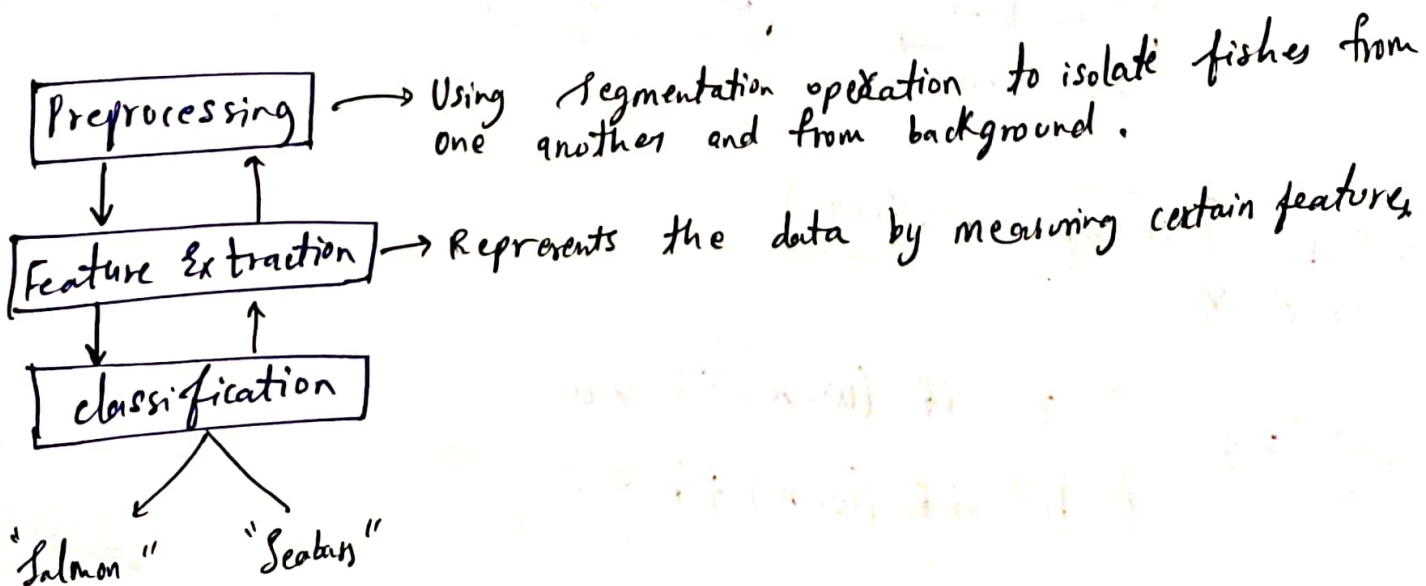 Preprocessing → Using segmentation operation to isolate fishes from
one another and from background.
Feature Extraction → Reprerents the data by measuring certain features
classification
"Salmon" "Seabass"